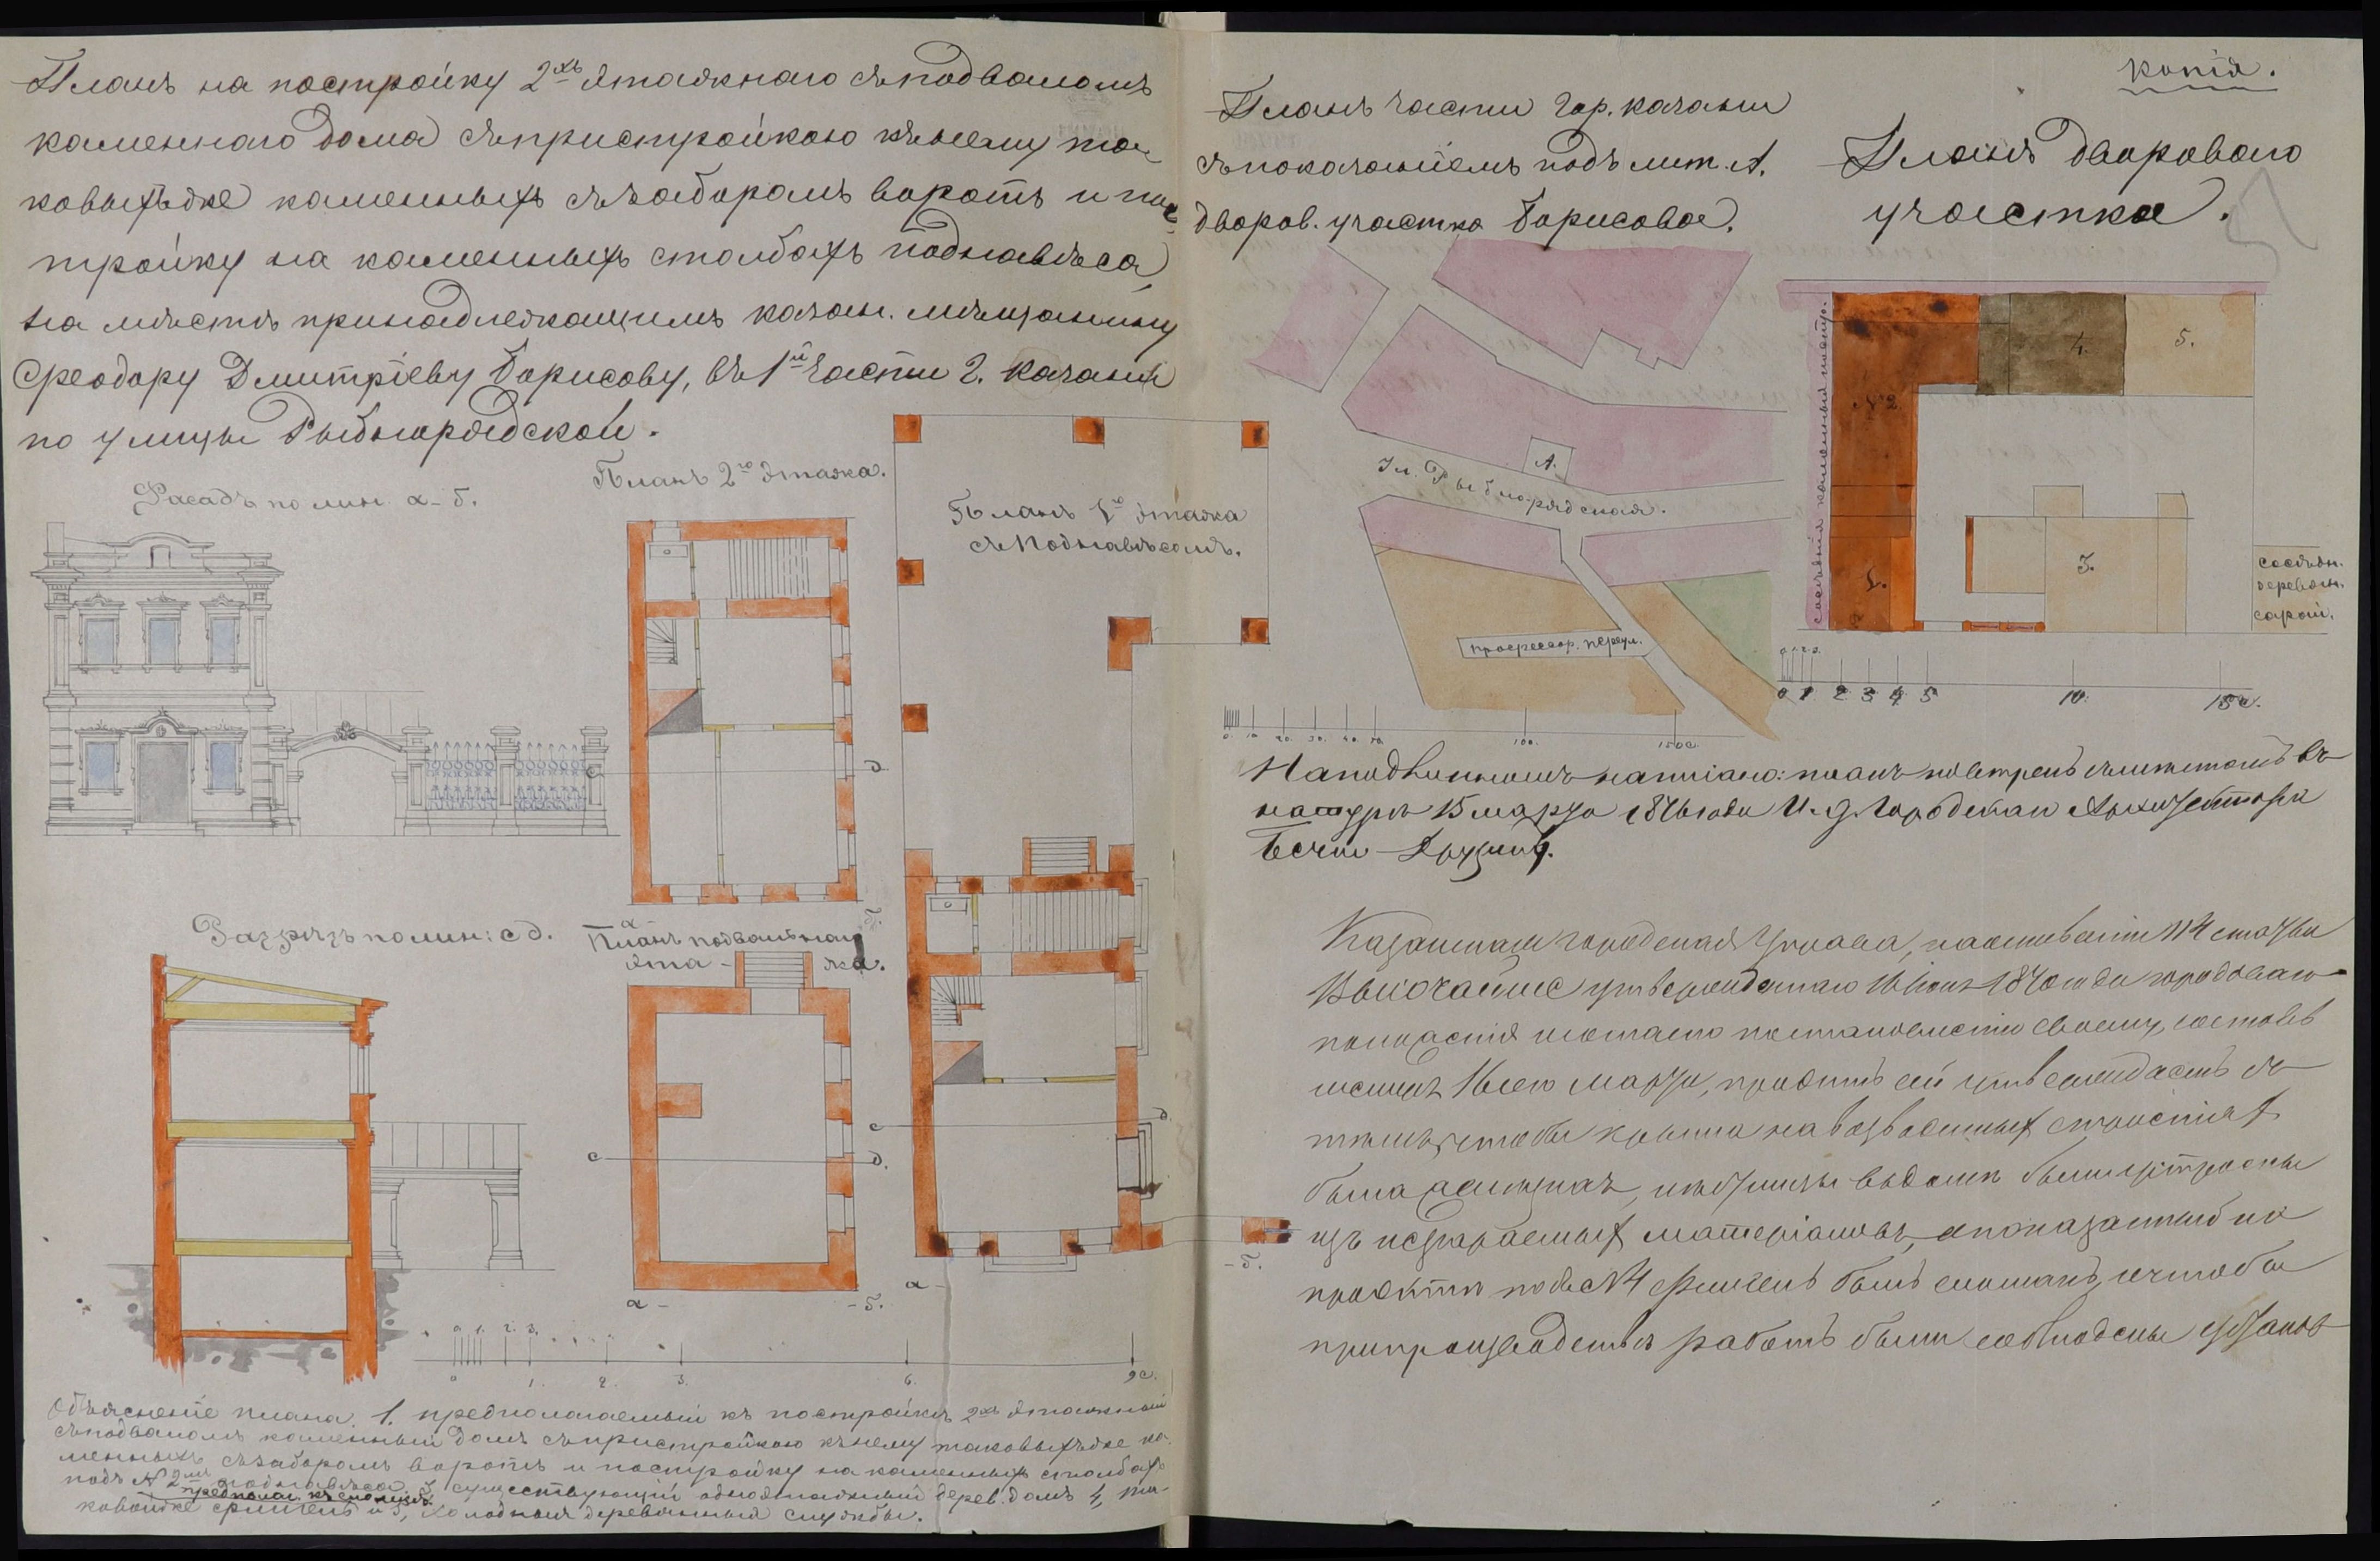 Планъ на постройку 2хъ этажнаго съ подваломъ
каменнаго дома съ пристройкою къ нему та-
ковыхъ же каменныхъ съ заборомъ воротъ и пос-
тройку на каменныхъ столбахъ поднавѣса,
на мѣстѣ принадлежащимъ казан. мѣщанину
Феодору Дмитріеву Борисову, въ 1й части г. Казани
по улицы Рыбнорядской.
Фасадъ по лин. а-б.
Планъ 2го этажа.
Планъ 1го этажа
съ поднавѣсомъ.
Разрѣзъ по лин: с д.
Планъ подвальнаго
эта- жа.
с д
с д.
с д
а б.
а - - б.
а - - б.
0. 1. 2. 3.
0 1. 2. 3. 6. 9 с.
Объясненіе плана. 1. предполагаемый къ постройкѣ 2хъ этажный
съ подваломъ каменный домъ съ пристройкою къ нему таковыхъ же ка-
менныхъ съ заборомъ воротъ и постройку на каменныхъ столбахъ
подъ № 2мъ поднавѣса, 3, существующій одноэтажный дерев. домъ 4, та-
предполаг. къ сломкѣ
ковой же флигель и 5, холодныя деревянныя службы.
копія.
Планъ части гор. Казани
съ показаніемъ подъ лит. А.
дворов. участка Борисова.
Планъ двороваго
участка.
А.
Ул. Рыбно-рядская.
профессор. переул.
0. 10. 20. 30. 40. 50. 100. 150 с.
сосѣдній каменный
№ 2.
1.
3.
4.
5.
сосѣдн.
деревян.
сарай.
0 1 2 3 4 5 10. 15 с.
На подлинномъ написано: планъ повѣренъ съ мѣстомъ въ
натурѣ 15 марта 1876 года И. д. Городскаго Архитектора
Казанская городская Управа, на основаніи 114 статьи
Высочайше утвержденнаго 16 Іюня 1870 года городоваго
положенія и согласно постановленію своему, состояв
шемуся 16сего Марта, проэктъ сей утверждаетъ съ
тѣмъ, чтобы крыша на возводимыхъ строеніяхъ
была желѣзная, лѣстницы въ домѣ были устроены
изъ несгараемыхъ матеріаловъ, а показанный на
проэктѣ подъ № 4 флигель былъ сломанъ, и чтобы
при производствѣ работъ были соблюдены